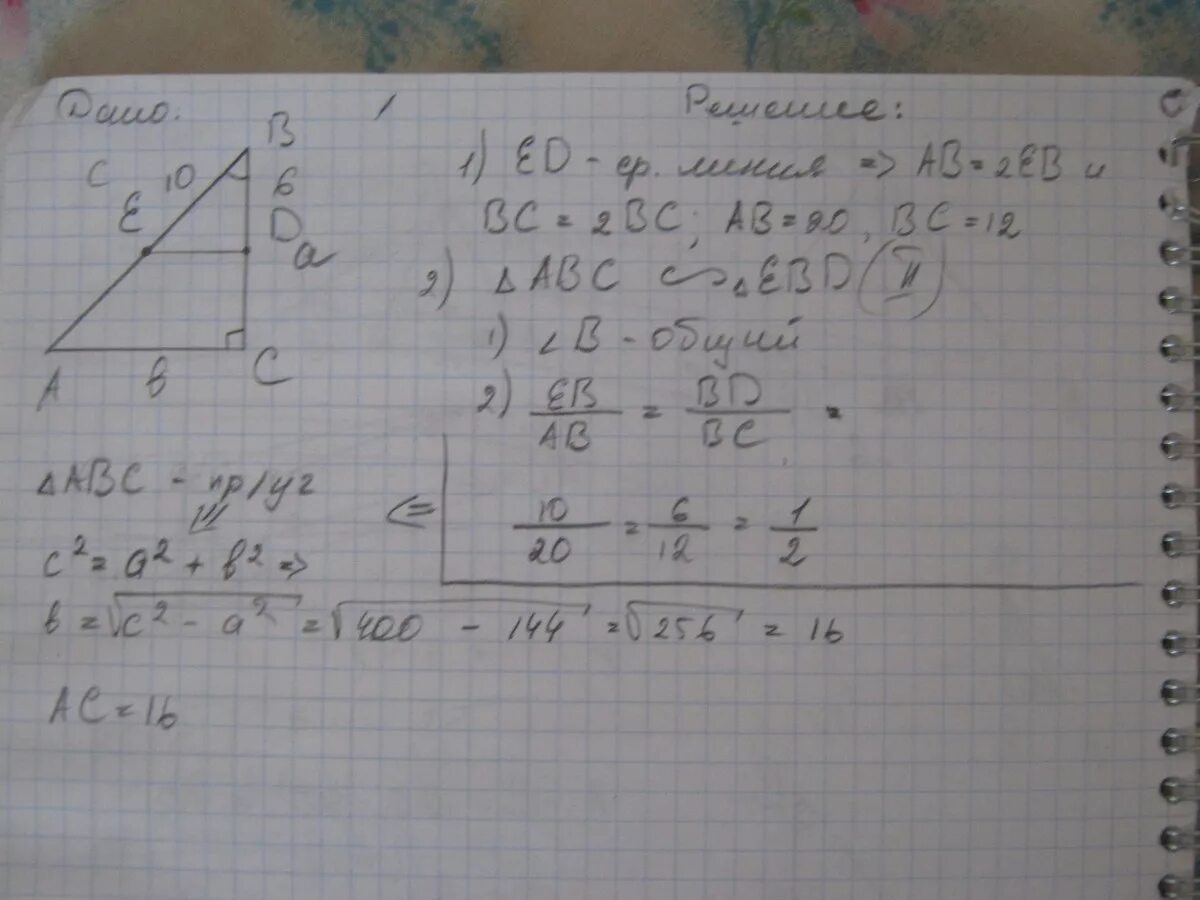 Дано:
B
C 10 6
E D
a
A в C
Решение:
1) ED - ср. линия => AB = 2EB и
BC = 2BC; AB = 20, BC = 12
2) △ABC ∽ △EBD (II)
1) ∠B - общий
2) EB/AB = BD/BC =
10/20 = 6/12 = 1/2
△ABC - пр/уг <=
c² = a² + b² =>
b = √c² - a² = √400 - 144 = √256 = 16
AC = 16